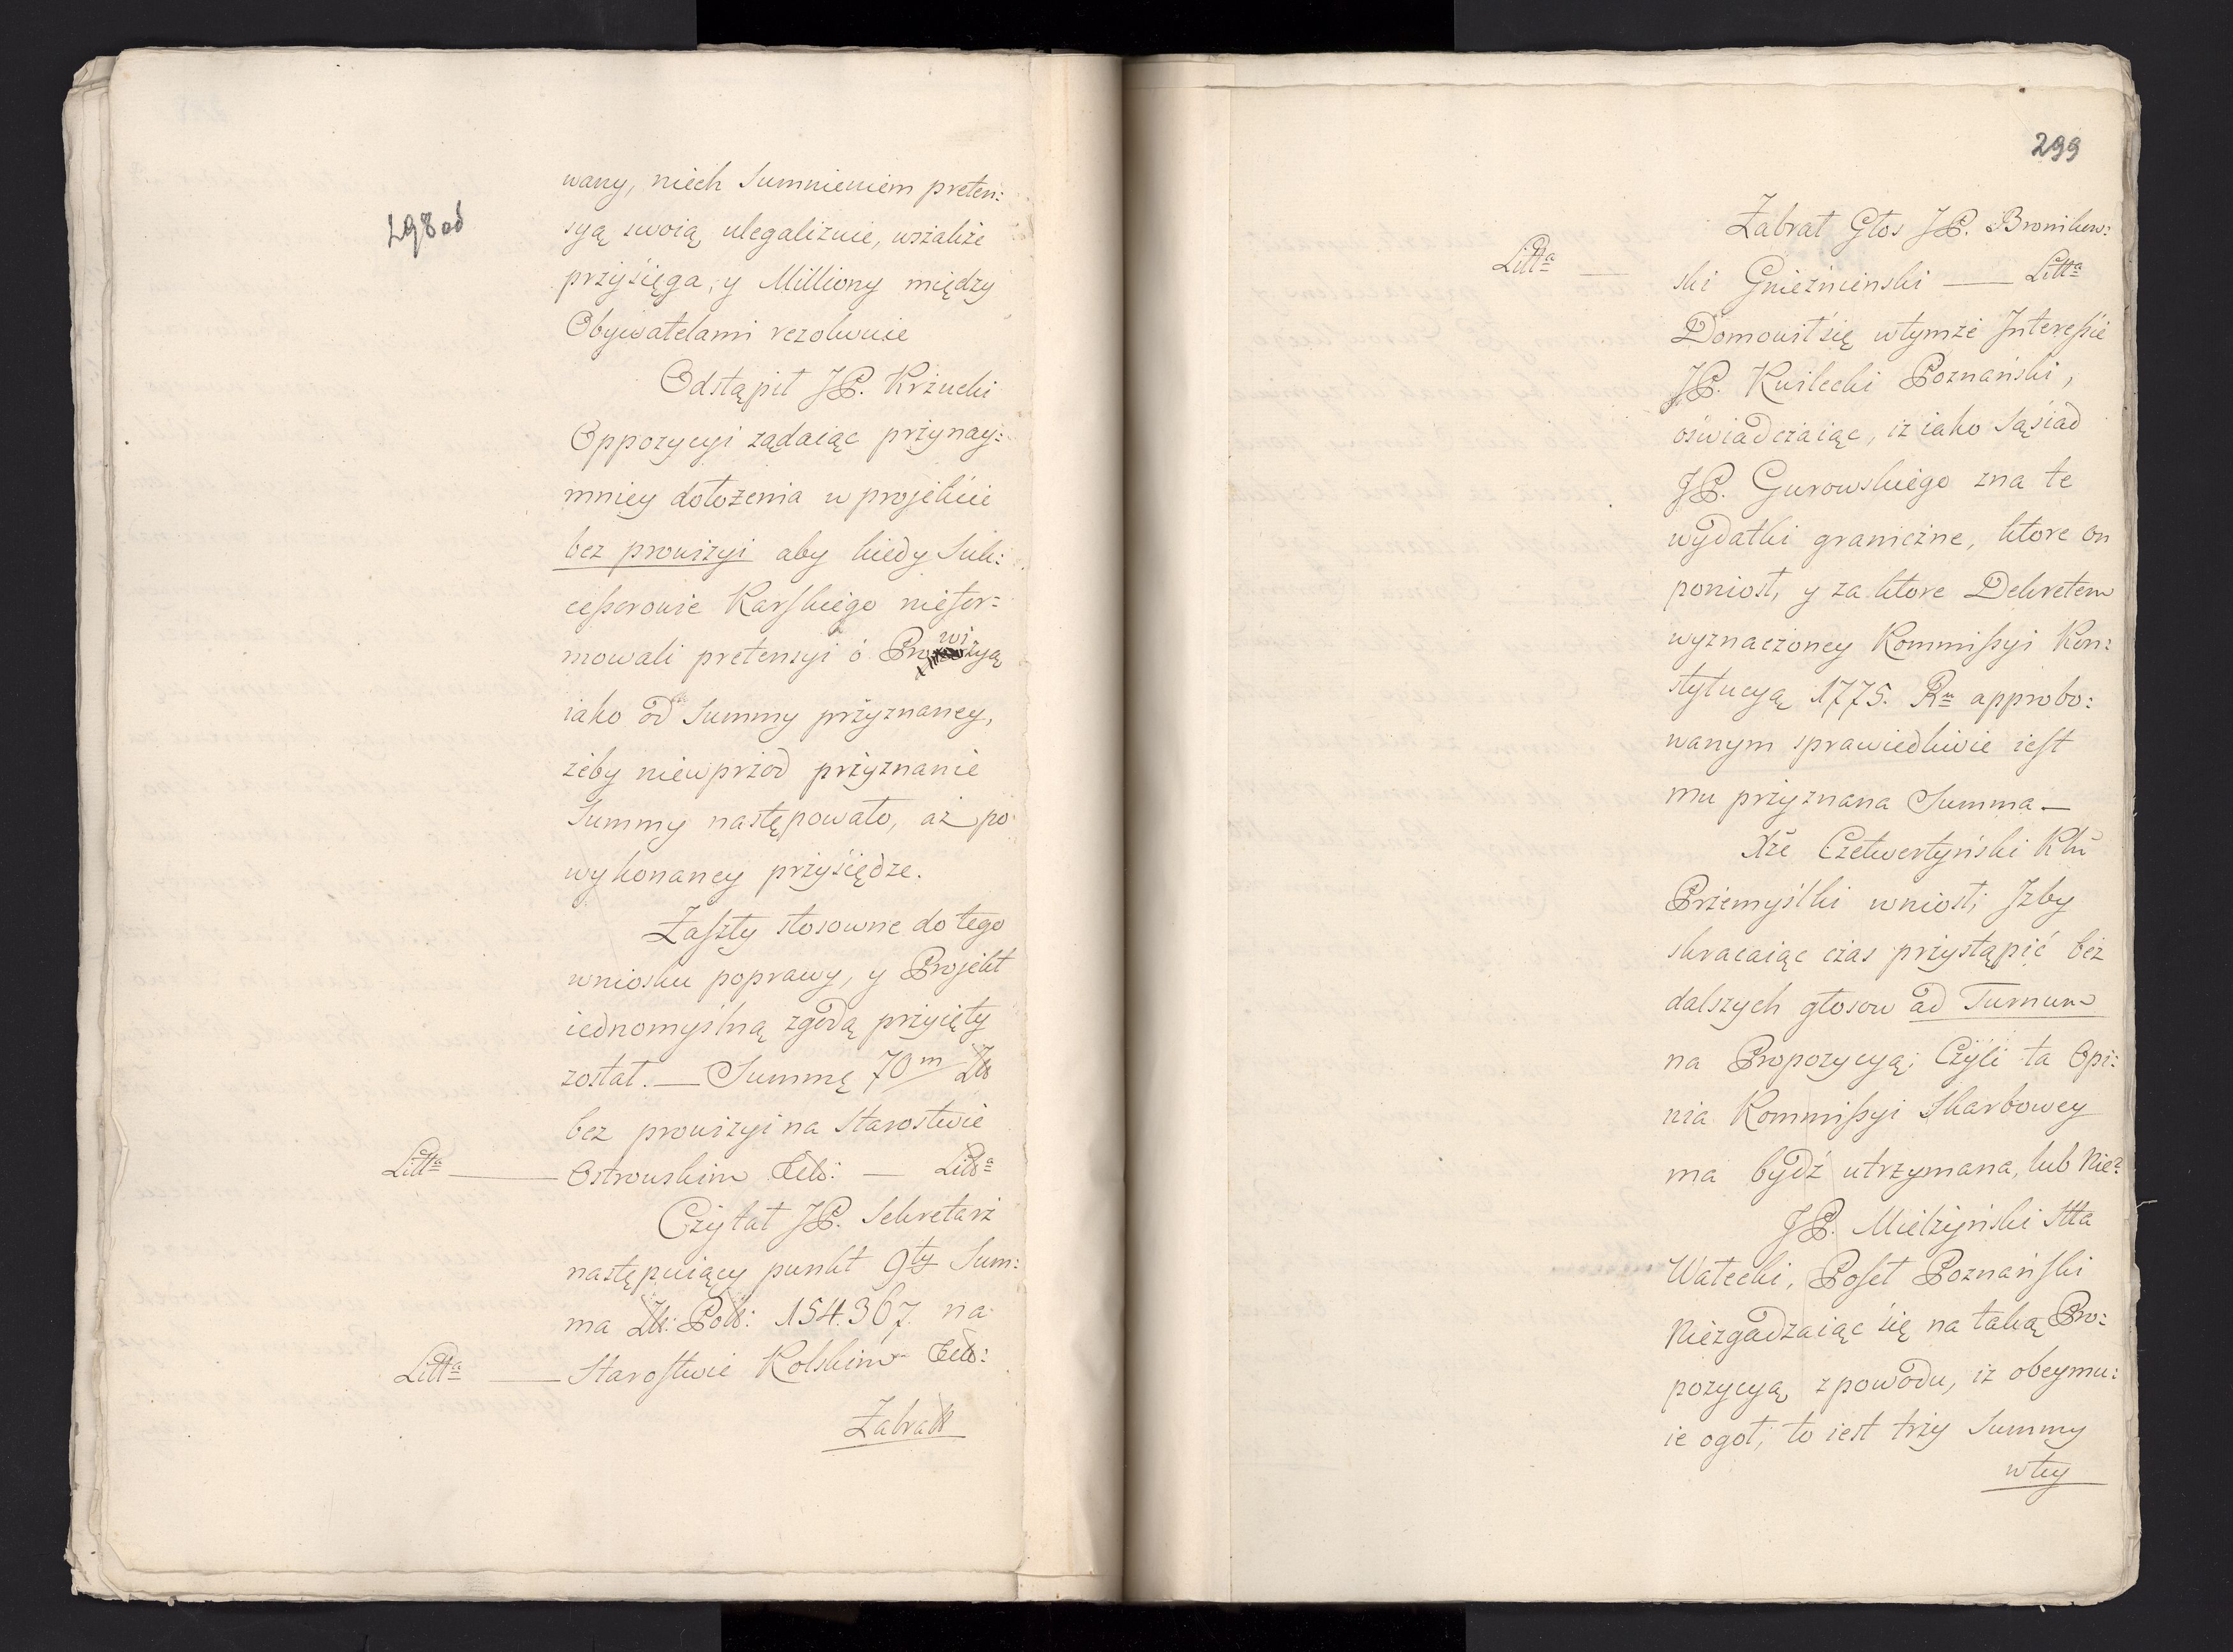 298 od
wany, niech Sumnieniem preten:
syą swoią ulegalizuie, wszakże
przysięga, y Milliony między
Obywatelami rezolwuie
Odstąpił JP. Krzucki
Oppozycyi żądaiąc przynay:
mniey dołożenia w projekcie
bez prowizyi aby kiedy Suk:
cessorowie Karskiego niefor:
mowali pretensyi o Prowizyą
iako od Summy przyznaney,
żeby niewprzod przyznanie
Summy następowało, aż po
wykonaney przysiędze.
Zaszły stosowne do tego
wniosku poprawy, y Projekt
iednomyslną zgodą przyięty
został. — Summę 70m Zł
bez prowizyi na Starostwie
Litta — Ostrowskim etc: — Litta
Czytał JP. Sekretarz
następuiący punkt 9ty Sum:
ma Zł: Pol: 154.367. na
Litta — Starostwie Kolskim etc:
Zabrał
299
Zabrał Głos JP. Bronikow:
Litta — ski Gnieźnienski — Litta
Domowił się w tymże Interessie
JP. Kwilecki Poznański,
oświadczaiąc, iż iako Sąsiad
JP. Gurowskiego zna te
wydatki graniczne, ktore on
poniosł, y za ktore Dekretem
wyznaczoney Kommissyi Kon:
stytucyą 1775. Ru approbo:
wanym sprawiedliwie iest
mu przyznana Summa —
Xże Czetwertyński Kttn
Przemyślki wniosł; Jzby
skracaiąc czas przystąpić bez
dalszych głosow ad Turnum
na Propozycyą; Czyli ta Opi:
nia Kommissyi Skarbowey
ma bydź utrzymana, lub Nie?
JP. Mielżyński Stta
Wałecki, Poseł Poznański
Niezgadzaiąc się na taką Pro:
pozycyą z powodu, iż obeymu:
ie ogoł; to iest trzy Summy
w tey